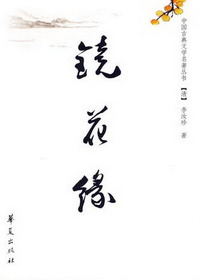 中国古典文学名著丛书
【清】 李汝珍 著
镜花缘
华夏出版社